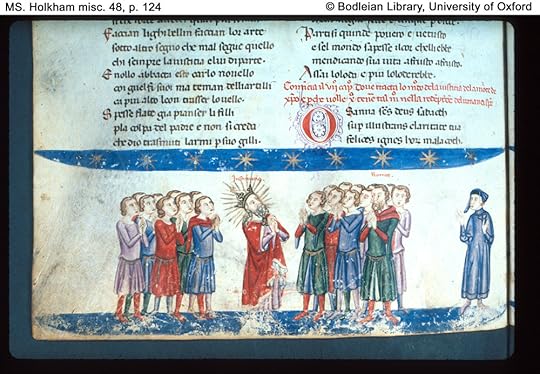 MS. Holkham misc. 48, p. 124
© Bodleian Library, University of Oxford
Faccian lighibellin faccian lor arte
sottaltro segno che mal segue quello
chi sempre la iustitia elui diparte.
E nollo abbatta esto carlo novello
coi guelfi suoi ma teman delliartilli
ca piu alto leon trasser lo vello.
Spesse fiate gia pianser li filli
pla colpa del padre e non si creda
che dio trasmuti larmi p suo gilli.
Partisi quindi povero e vetusto
e sel mondo sapesse il cor chelli ebbe
mendicando sua vita affrusto affrusto
Assai lo loda e piu lo loderebbe.
Osanna scs deus sabaoth
sup illustrans claritate tua
felices ignes hor malacoth.